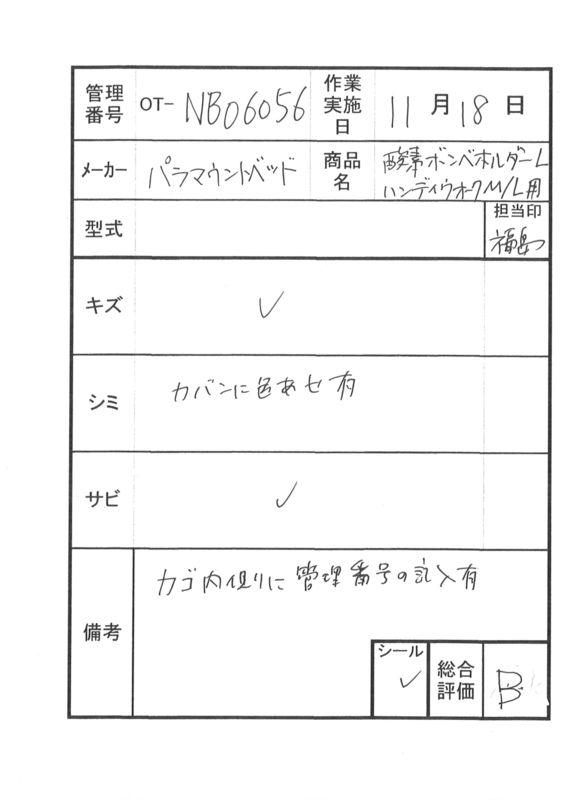 管理番号 OT- NB06056 作業実施日 11月18日
メーカー パラマウントベッド 商品名 酸素ボンベホルダーL
ハンディウォークM/L用
型式 担当印
福島
キズ ✓
シミ カバンに色あせ有
サビ ✓
備考 カゴ内側に管理番号の記入有
シール ✓ 総合評価 B